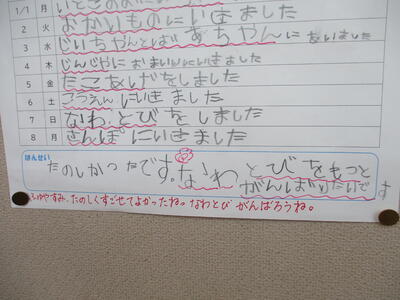 1/1 月 いとこのおに
2 火 おかいものにいきました
3 水 じいちゃんとばあちゃんにあいました
4 木 じんじゃにおまいりにいきました
5 金 たこあげをしました
6 土 こうえんにいきました
7 日 なわとびをしました
8 月 さんぽにいきました
はんせい
たのしかったです。なわとびをもっと
がんばりたいです
ふゆやすみ、たのしくすごせてよかったね。なわとび がんばろうね。